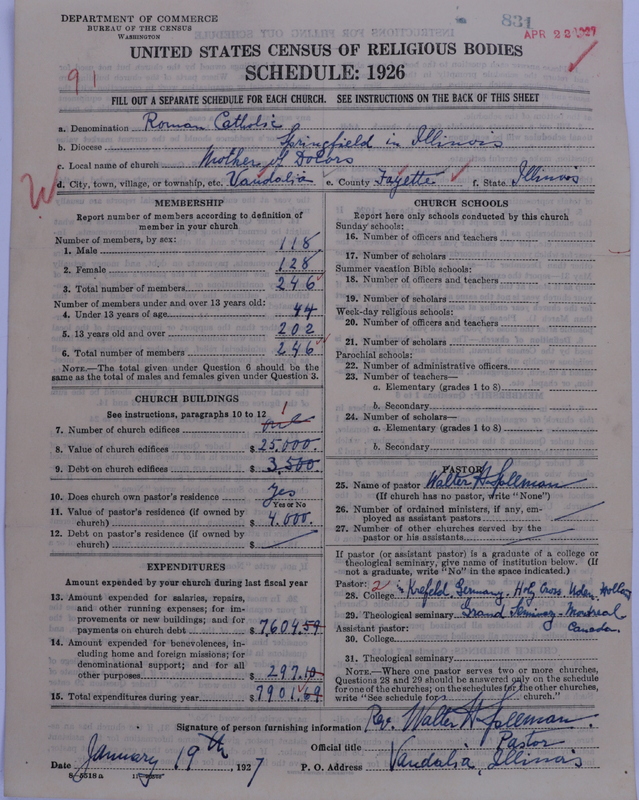 DEPARTMENT OF COMMERCE
BUREAU OF THE CENSUS
WASHINGTON
831
APR 22 1927
91
UNITED STATES CENSUS OF RELIGIOUS BODIES
SCHEDULE: 1926
FILL OUT A SEPARATE SCHEDULE FOR EACH CHURCH. SEE INSTRUCTIONS ON THE BACK OF THIS SHEET
a. Denomination Roman Catholic
b. Diocese Springfield in Illinois
c. Local name of church Mother of Dolors
d. City, town, village, or township, etc. Vandalia e. County Fayette f. State Illinois
MEMBERSHIP
Report number of members according to definition of
member in your church
Number of members, by sex:
1. Male 118
2. Female 128
3. Total number of members 246
Number of members under and over 13 years old:
4. Under 13 years of age 44
5. 13 years old and over 202
6. Total number of members 246
NOTE.—The total given under Question 6 should be
the same as the total of males and females given under Question 3.
CHURCH BUILDINGS
See instructions, paragraphs 10 to 12
7. Number of church edifices one 1
8. Value of church edifices $ 25.000.
9. Debt on church edifices $ 3,500
10. Does church own pastor's residence yes
Yes or No
11. Value of pastor's residence (if owned by
church) $ 4.000.
12. Debt on pastor's residence (if owned by
church) $
EXPENDITURES
Amount expended by your church during last fiscal year
13. Amount expended for salaries, repairs,
and other running expenses; for im-
provements or new buildings; and for
payments on church debt $ 7604.59
14. Amount expended for benevolences, in-
cluding home and foreign missions; for
denominational support; and for all
other purposes $ 297.10
15. Total expenditures during year $ 7901.69
CHURCH SCHOOLS
Report here only schools conducted by this church
Sunday schools:
16. Number of officers and teachers
17. Number of scholars
Summer vacation Bible schools:
18. Number of officers and teachers
19. Number of scholars
Week-day religious schools:
20. Number of officers and teachers
21. Number of scholars
Parochial schools:
22. Number of administrative officers
23. Number of teachers—
a. Elementary (grades 1 to 8)
b. Secondary
24. Number of scholars—
a. Elementary (grades 1 to 8)
b. Secondary
PASTOR
25. Name of pastor Walter H.
(If church has no pastor, write "None")
26. Number of ordained ministers, if any, em-
ployed as assistant pastors
27. Number of other churches served by the
pastor or his assistants
If pastor (or assistant pastor) is a graduate of a college or
theological seminary, give name of institution below. (If
not a graduate, write "No" in the space indicated.)
Pastor: 2
28. College Krefeld Germany. Holy Cross Uden, Holland
29. Theological seminary Grand Seminary-Montreal
Assistant pastor: Canada.
30. College
31. Theological seminary
NOTE.—Where one pastor serves two or more churches,
Questions 28 and 29 should be answered only on the schedule
for one of the churches; on the schedules for the other churches,
write "See schedule for church."
Signature of person furnishing information Rev. Walter H.
Official title Pastor
Date January 19th, 1927 P. O. Address Vandalia, Illinois
8—5518a